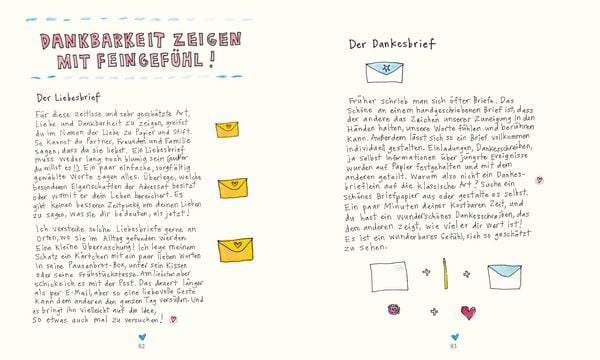 DANKBARKEIT ZEIGEN
MIT FEINGEFÜHL!
Der Liebesbrief
Für diese zeitlose und sehr geschätzte Art,
Liebe und Dankbarkeit zu zeigen, greifst
du im Namen der Liebe zu Papier und Stift.
So kannst du Partner, Freunden und Familie
sagen, dass du sie liebst. Ein Liebesbrief
muss weder lang noch blumig sein (außer
du willst es!). Ein paar einfache, sorgfältig
gewählte Worte sagen alles. Überlege, welche
besonderen Eigenschaften der Adressat besitzt
oder womit er dein Leben bereichert. Es
gibt keinen besseren Zeitpunkt, um deinen Lieben
zu sagen, was sie dir bedeuten, als jetzt!
Ich verstecke solche Liebesbriefe gerne an
Orten, wo sie im Alltag gefunden werden.
Eine kleine Überraschung! Ich lege meinem
Schatz ein Kärtchen mit ein paar lieben Worten
in seine Pausenbrot-Box, unter sein Kissen
oder seine Frühstückstasse. Am liebsten aber
schicke ich es mit der Post. Das dauert länger
als per E-Mail, aber so eine liebevolle Geste
kann dem anderen den ganzen Tag versüßen. Und
es bringt ihn vielleicht auf die Idee,
so etwas auch mal zu versuchen!
82
Der Dankesbrief
Früher schrieb man sich öfter Briefe. Das
Schöne an einem handgeschriebenen Brief ist, dass
der andere das Zeichen unserer Zuneigung in den
Händen halten, unsere Worte fühlen und berühren
kann. Außerdem lässt sich so ein Brief vollkommen
individuell gestalten. Einladungen, Dankesschreiben,
ja selbst Informationen über jüngste Ereignisse
wurden auf Papier festgehalten und mit dem
anderen geteilt. Warum also nicht ein Dankes-
brieflein auf die klassische Art? Suche ein
schönes Briefpapier aus oder gestalte es selbst.
Ein paar Minuten deiner kostbaren Zeit, und
du hast ein wunderschönes Dankesschreiben, das
dem anderen zeigt, wie viel er dir wert ist!
Es ist ein wunderbares Gefühl, sich so geschätzt
zu sehen.
+ +
+
83